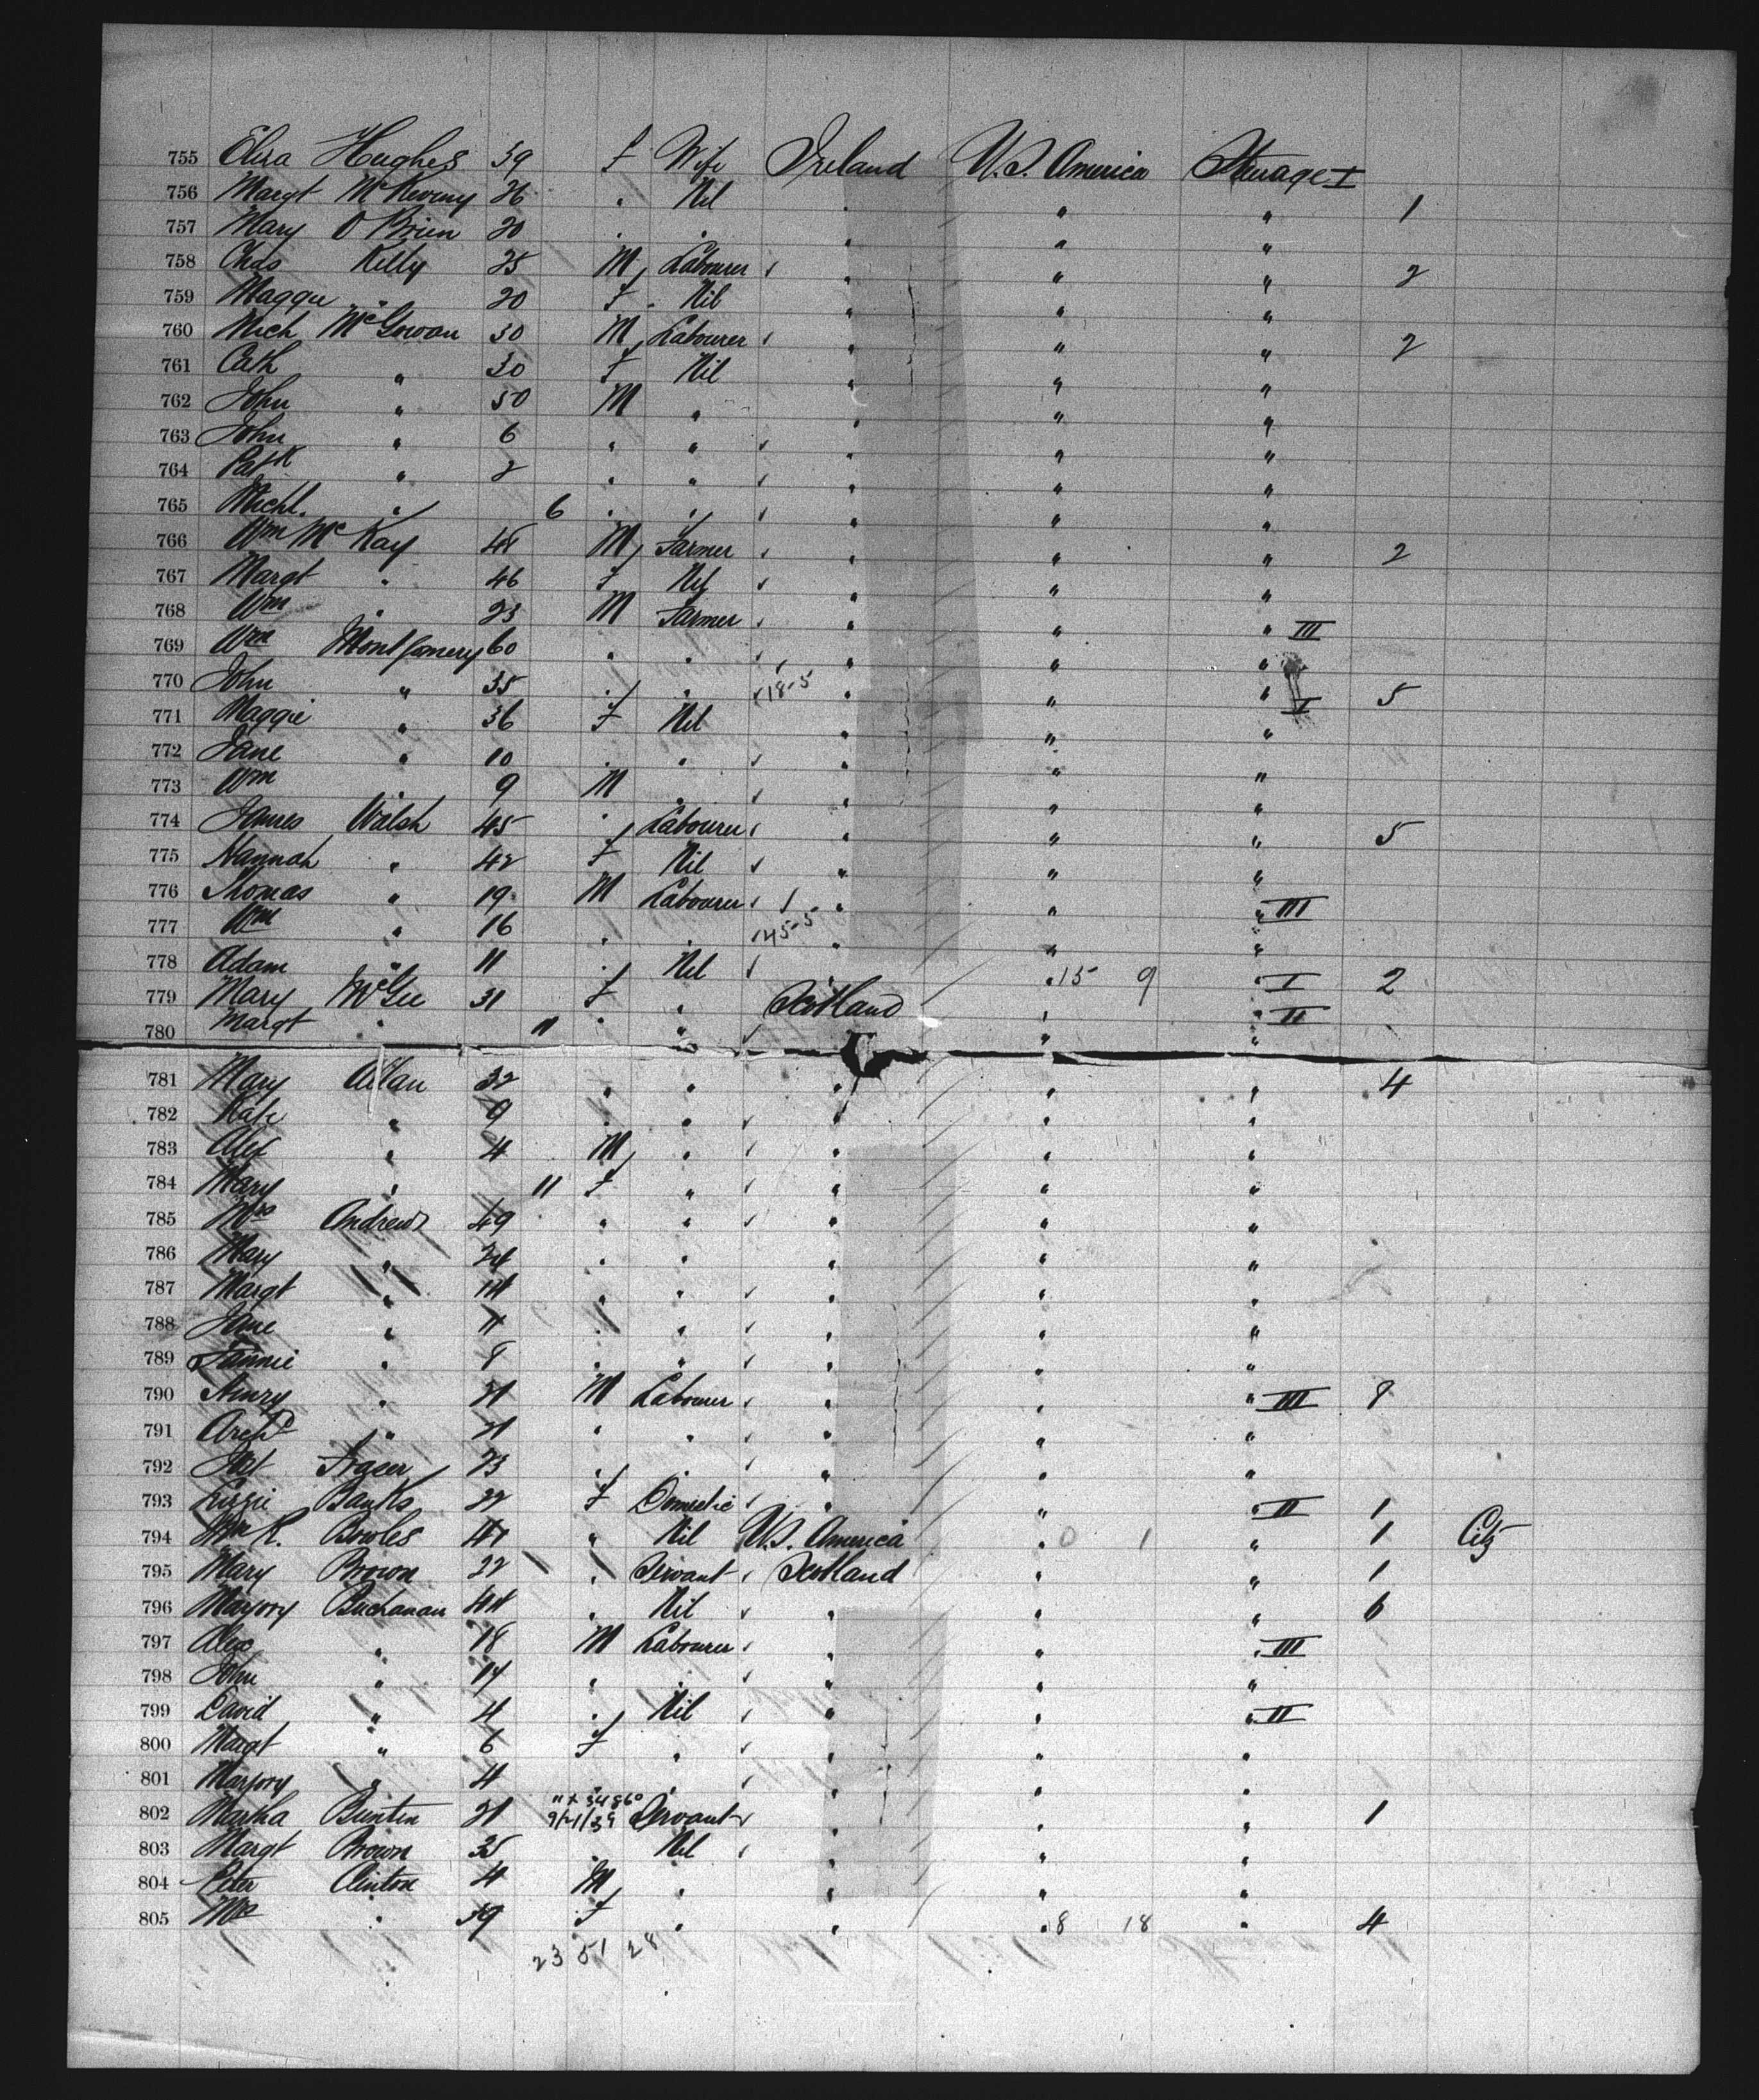 755 Eliza Hughes 39 f Wife Ireland U.S. America Steerage I
756 Margt McKeveny 26 " Nil " " " 1
757 Mary O Brien 20 " " " " "
758 Chas Kelly 25 M Labourer " " " 2
759 Maggie " 20 f Nil " " "
760 Mich McGowan 30 M Labourer " " " 2
761 Cath " 30 f Nil " " "
762 John " 50 M " " " "
763 John " 6 " " " " "
764 Patk " 2 " " " " "
765 Michl. " 6 " " " " "
766 Wm McKay 48 M Farmer " " " 2
767 Margt " 46 f Nil " " "
768 Wm " 23 M Farmer " " " III
769 Wm Montgomery 60 " " " " "
770 John " 35 " " 18-5 " " " I 5
771 Maggie " 36 f Nil " " "
772 Jane " 10 " " " " "
773 Wm " 9 M " " " "
774 James Walsh 45 " Labourer " " " 5
775 Hannah " 42 f Nil " " "
776 Thomas " 19 M Labourer " " " III
777 Wm " 16 " " " " "
778 Adam " 11 " Nil " 15 9 " I 2
779 Mary McGee 31 f " Scotland " " II
780 Margt " 11 " " " "
781 Mary Allan 32 " " " " " 4
782 Kate " 9 " " " " "
783 Alex " 4 M " " " "
784 Mary " 11 f " " " "
785 Mrs Andrews 49 " " " " "
786 Mary " 24 " " " " "
787 Margt " 14 " " " " "
788 Jane " 11 " " " " "
789 Fannie " 8 " " " " "
790 Henry " 21 M Labourer " " " III 8
791 Archd " 21 " " " " "
792 Fraser 23 " " " " "
793 Lizzie Banks 22 f Domestic " " " II 1
794 R. Bowles 41 " Nil U.S. America " 0 1 " 1 Citz
795 Mary Brown 22 " Servant Scotland " " 1
796 Marjory Buchanan 44 " Nil " " " 6
797 Alex " 18 M Labourer " " " III
798 John " 14 " " " " "
799 David " 4 " Nil " " " II
800 Margt " 6 f " " " "
801 Marjory " 4 " " " " "
802 Martha Buntin 21 Servant " " " 1
803 Margt Brown 35 " Nil " " "
804 Peter Clinton 4 M " " " "
805 Mrs " 39 f " " " 8 18 " 4
23 51 28